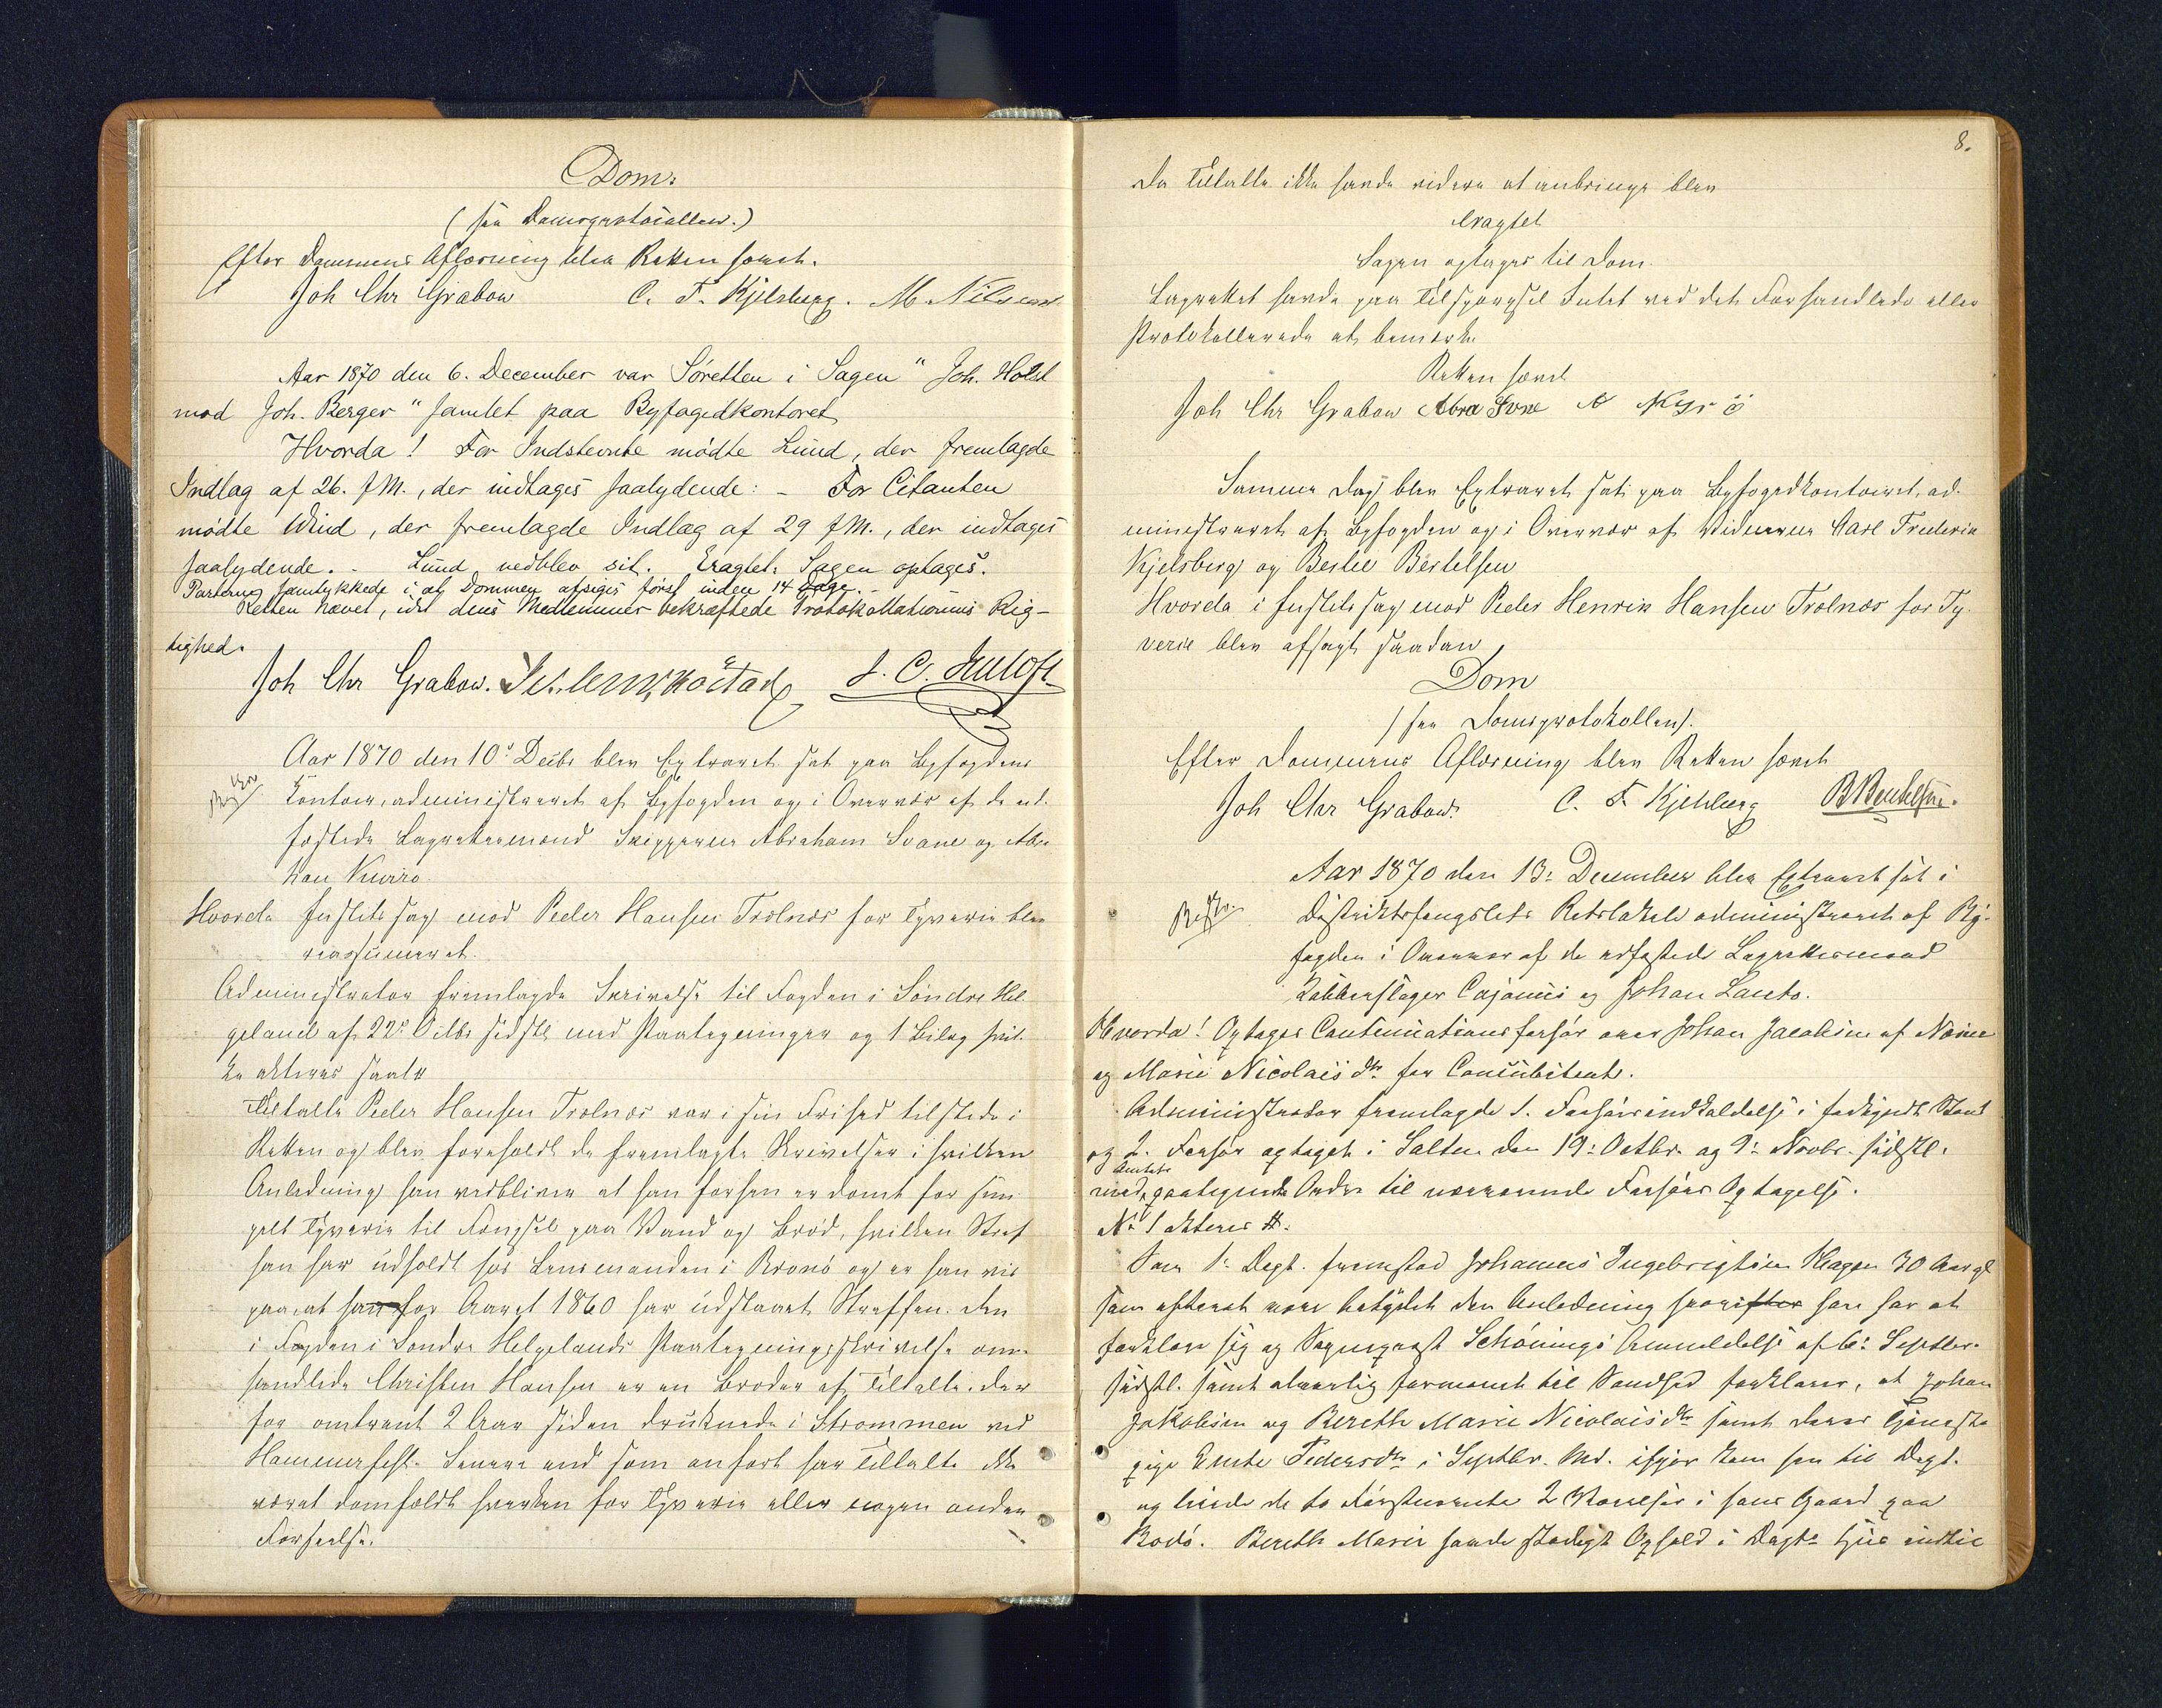 Dom.
(see Domsprotocollen.)
Efter Dommens Aflæsning blev Retten hævet.
Joh Chr Grabow C. F. Kjelsberg. M. Nilssen
Aar 1870 den 6. December var Søretten i Sagen "Joh. Holst
mod Joh. Berger" samlet paa Byfogedkontoret
Hvorda! For Indstevnte mødte Lund, der fremlagde
Indlag af 26. f M., der indtages saalydende: - For Citanten
mødte Wind, der fremlagde Indlæg af 29 f M., der indtages
saalydende. - Lund vedblev sit. Eragtet: Sagen optages.
Parterne samtykkede i at Dommen afsiges først inden 14 Dage. -
Retten hævet, idet dens Medlemmer bekræftede Protokollationens Rig-
tighed.
Joh Chr Grabow.
Aar 1870 den 10de Decbr blev Extraret sat paa Byfogdens
Kontoir, administreret af Byfogden og i Overvær af de ed-
fæstede Lagrettesmænd Skipperne Abraham Svane og
Hvorda Justitssag mod Peder Hansen Trælnæs for Tyveri blev
reassumeret.
Administrator fremlagde Skrivelse til Fogden i Søndre Hel
geland af 22de Octbr sidstl med Paategninger og 1 Bilag hvil-
ke akteres saal.
Tiltalte Peder Hansen Trælnæs var i sin Frihed tilstede i
Retten og blev foreholdt de fremlagte Skrivelser i hvilken
Anledning han vedbliver at han forhen er dømt for sim
pelt Tyveri til Fængsel paa Vand og Brød, hvilken Straf
han har udholdt hos Lensmanden i Brønø og er han vis
paa at han før Aaret 1860 har udstaaet Straffen. Den
i Fogden i Søndre Helgelands Paategningsskrivelse om-
handlede Christen Hansen er en Broder af Tiltalte, der
for omtrent 2 Aar siden druknede i Strømmen ved
Hammerfest. Senere end som anført har Tiltalte ikke
været domfældt hverken for Tyveri eller nogen anden
Forseelse.
8.
Da Tiltalte ikke havde videre at anbringe blev
eragtet
Sagen optages til Dom.
Lagrettet havde paa Tilspørgsel Intet ved det Forhandlede eller
Protokollerede at bemærke
Retten hævet
Joh Chr Grabow
Samme Dag blev Extraret sat paa Byfogedkontoiret, ad-
ministreret af Byfogden og i Overvær af Vidnerne Carl Frederik
Kjelsberg og Bertel Bertelsen
Hvorda i Justitssag mod Peder Henrik Hansen Trælnæs for Ty-
verie blev afsagt saadan
Dom
(see Domsprotokollen).
Efter Dommens Aflæsning blev Retten hævet
Joh Chr Grabow. C. F. Kjelsberg B Bertelsen.
Aar 1870 den 13: December blev Extraret sat i
Distriktsfængslets Retslokale administreret af By-
fogden i Overvær af de edfæstede Lagrettesmænd
Kobberslager Cajanus og Johan Lauto.
Hvorda! Optages Continuationsforhør over Johan Jacobsen af
og Marie Nicolaisdtr for Concubitent.
Administrator fremlagde 1. Forhørsindkaldelse i forkyndt Stand
og 2. Forhør optaget i Salten den 19: Octbr. og 9: Novbr. sidstl.
med Amtets paategnede Ordre til nærværende Forhørs Optagelse.
No 1 akteres #.
Som 1: Dept. fremstod Johannes Ingebrigtsen Hagen 30 Aar gl
som efterat være betydet den Anledning hvori han har at
forklare sig og Sogneprest Schønings Anmeldelse af 6: Septbr.
sidstl. samt alvorlig formanet til Sandhed forklarer, at Johan
Jakobsen og Bereth Marie Nicolaisdtr samt deres Tjeneste
pige Pedersdtr i Septbr. Md. ifjor kom hen til Dept.
og leiede de to Førstnævnte 2 Værelser i hans Gaard paa
Bodø. Bereth Marie havde stadigt Ophold i Depts Hus indtil